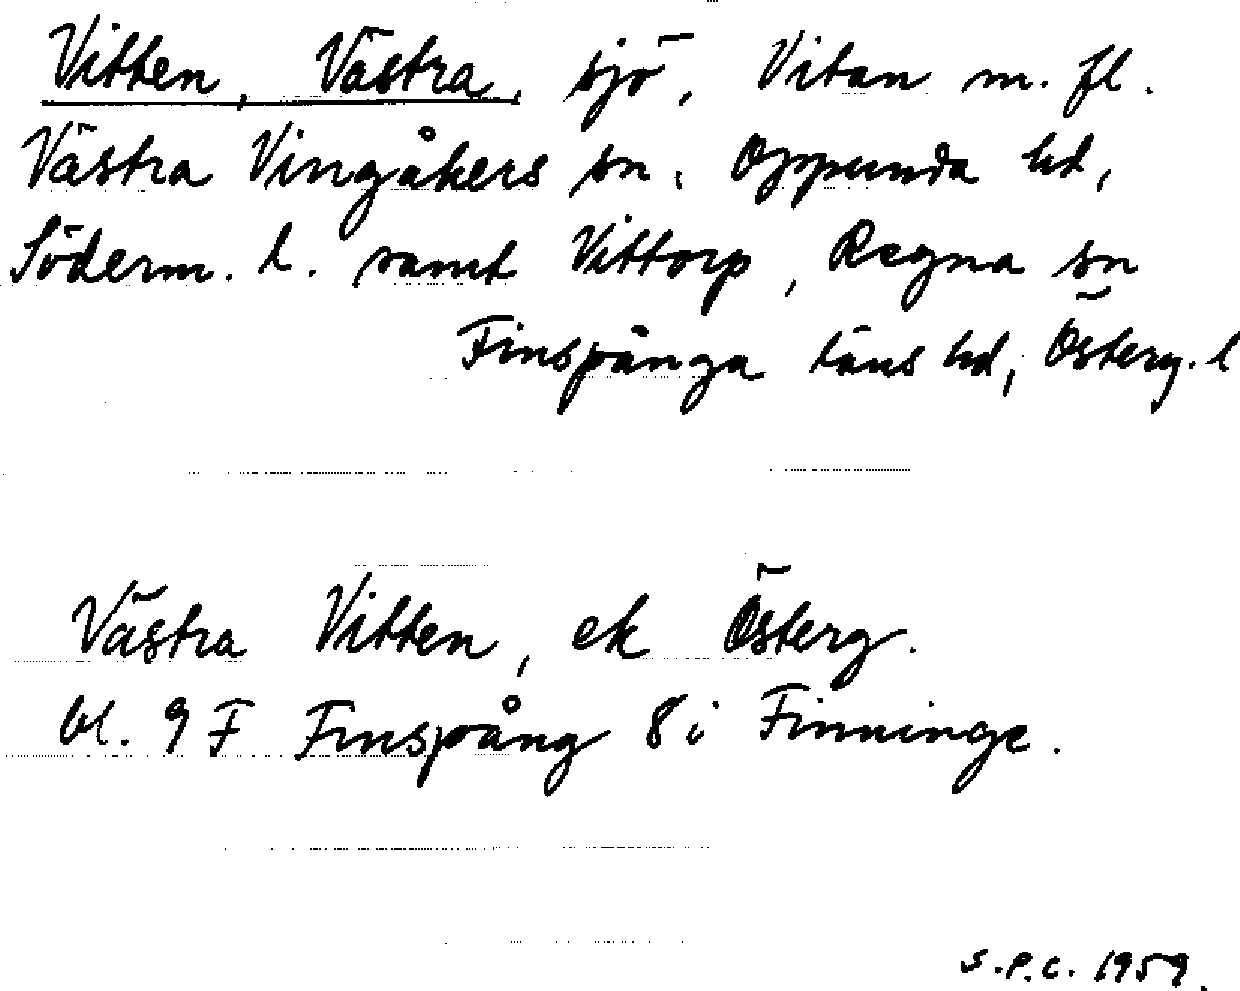 Vitten, Västra, sjö, Vitan m. fl.
Västra Vingåkers sn, Oppunda hd,
Söderm. l. samt Vittorp, Regna sn
Finspånga läns hd, Österg. l
Västra Vitten, ek Österg.
bl. 9 F Finspång 8 i Finninge.
S.P.C. 1959.